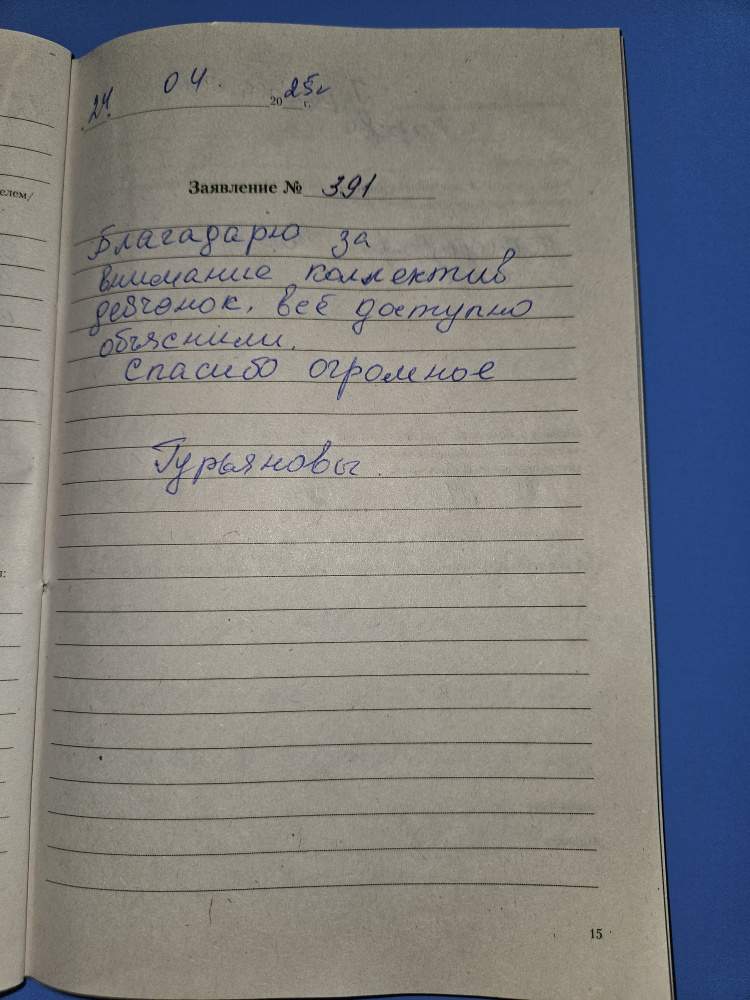 24. 04. 2025г г.
Заявление № 391
Благадарю за
внимание коллектив
девчонок, всё доступно
объяснили.
Спасибо огромное
Гурьяновы
елем/
15